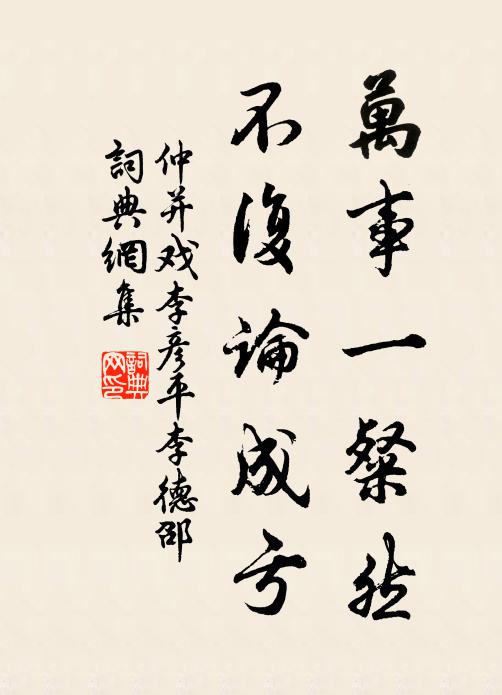 萬事一粲然
不復論成亏
仲并戏李彦平李德邵
詞典網集
詞典网印